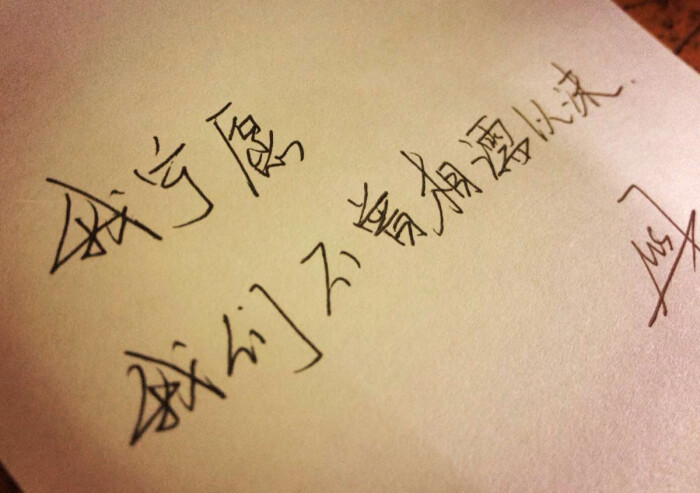 我宁愿
我们不曾相濡以沫.